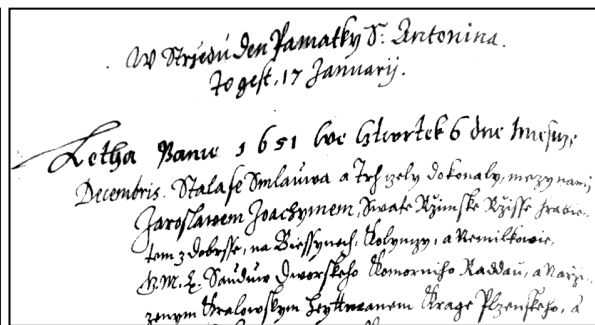 W Strzedu den Pamatky S. Antonina.
to gest, 17 Januarij.
Letha Panie 1651 we Cztwrtek 6 dne Miesyce
Decembris. Stala se Smlauwa a Trh czely dokonaly, mezy namj
Jaroslawem Joachymem, Swate Rzimske Rzisse Hrabie-
tem z Dobrsse, na Biessynech, Kolynczy, a Nemilkowie,
G. M. C. Sauduw Dworskeho Komorniho Raddau, a Narzi-
zenym Kralowskym Heyttmanem Krage Plzenskeho, a